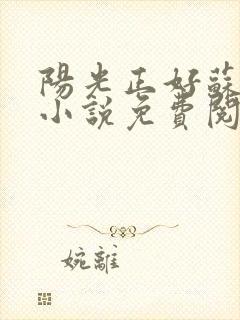 陽光正好蘇
小說免費閱
婉離